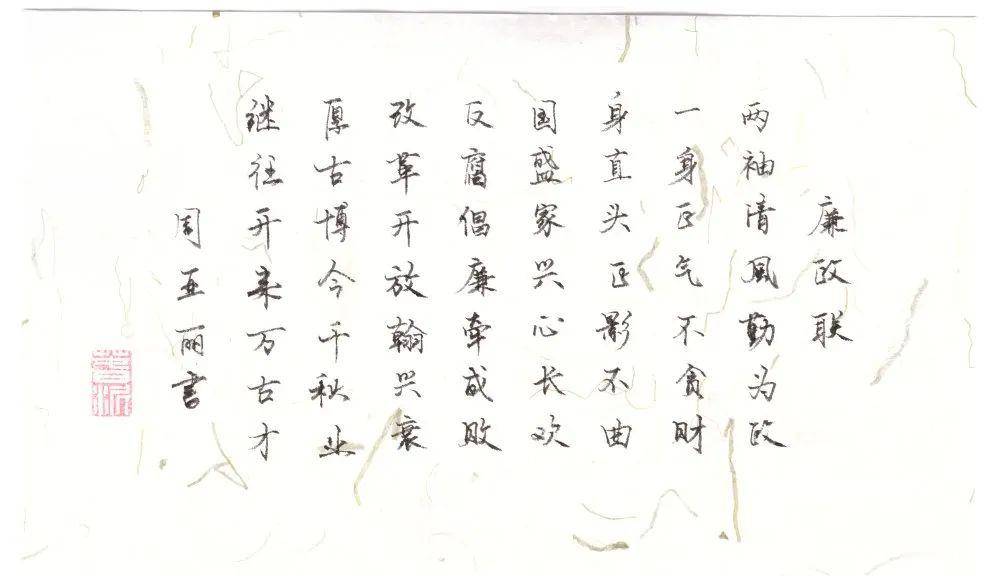 廉政联
两袖清风勤为政
一身正气不贪财
身直头正影不曲
国盛家兴心长欢
反腐倡廉牵成败
改革开放翰兴衰
厚古博今千秋业
继往开来万古才
周亚丽书